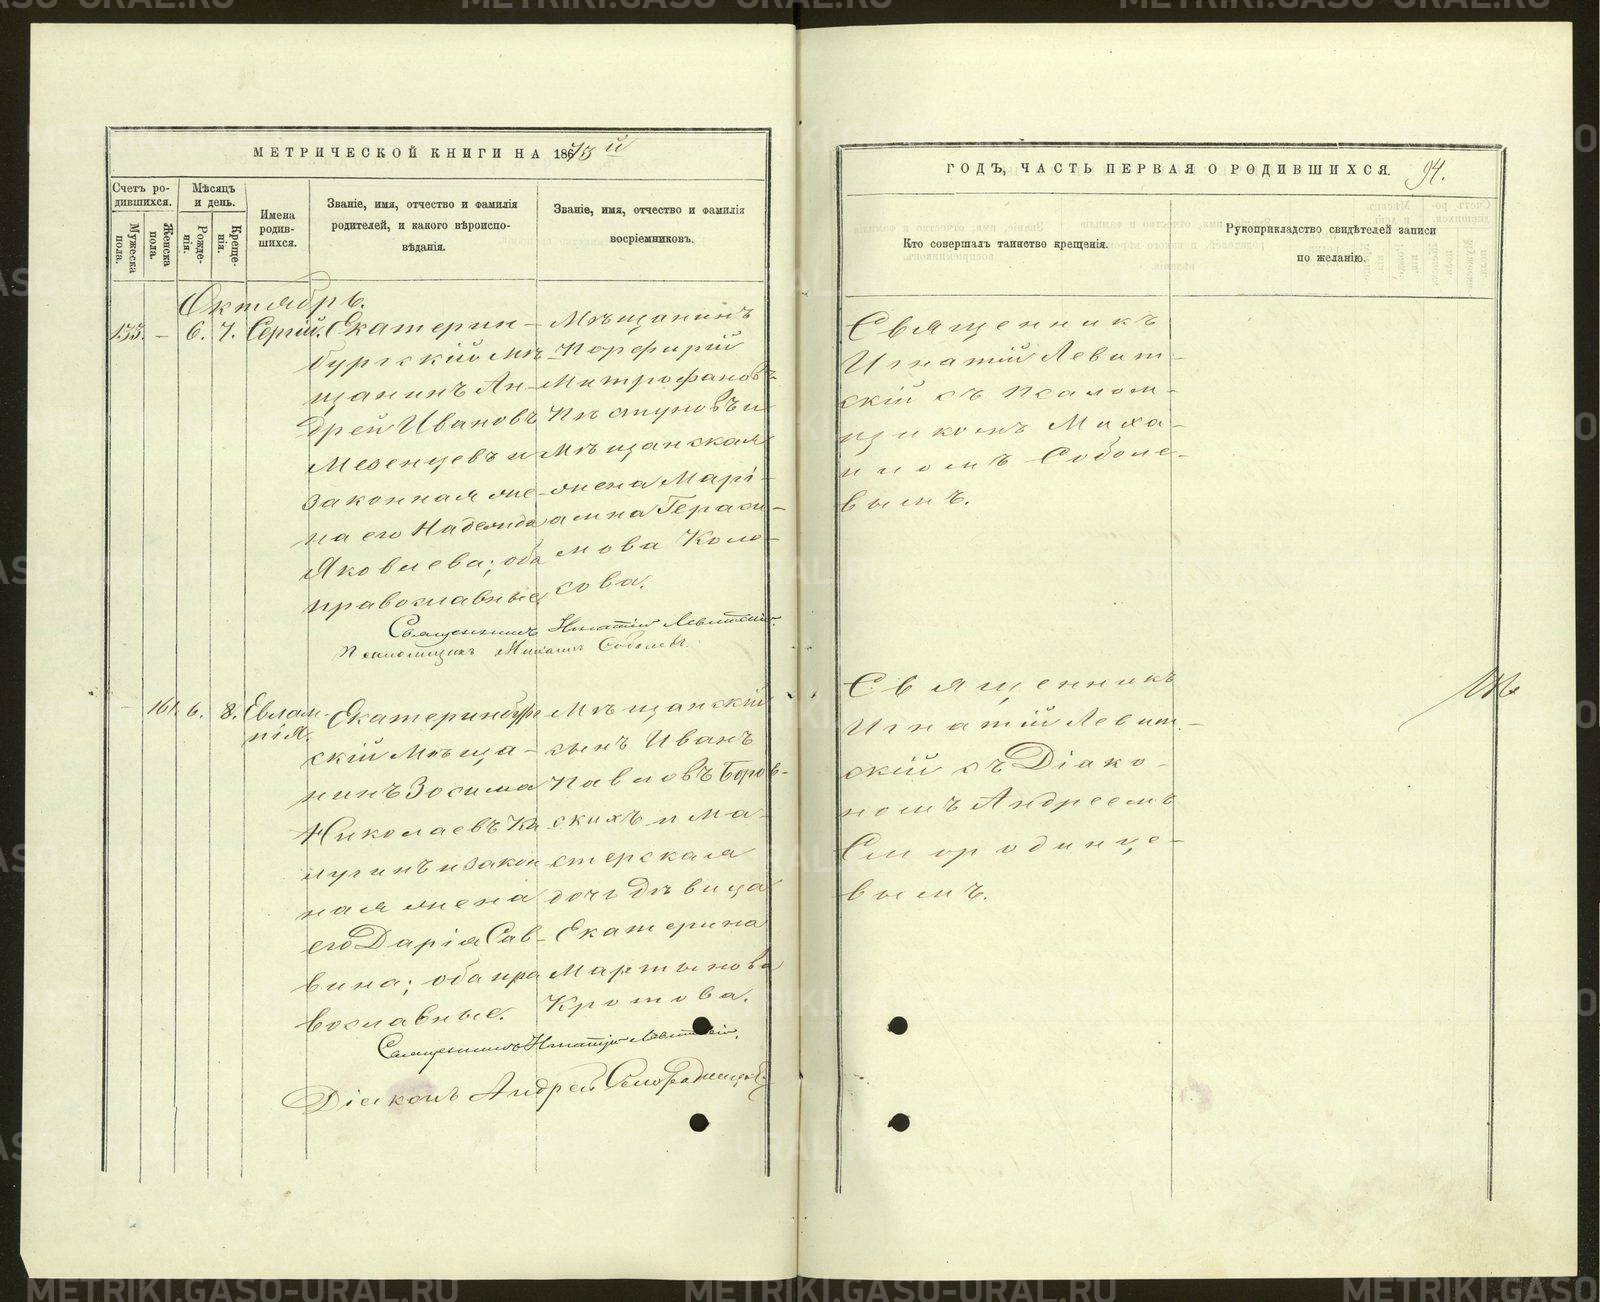 МЕТРИЧЕСКОЙ КНИГИ НА 1873й
Счетъ родившихся.
Мужеска пола.
Женска пола.
Мѣсяцъ и день.
Рожденія.
Крещенія.
Имена родившихся.
Званіе, имя, отчество и фамилія
родителей, и какого вѣроиспо-
вѣданія.
Званіе, имя, отчество и фамилія
воспріемниковъ.
Октябрь.
133. — 6. 7. Сергій.
Екатерин-
бургскій мѣ-
щанинъ Ан-
дрей Ивановъ
Мезенцевъ и
законная же-
на его Надежда
Яковлева; оба
православные.
Мѣщанинъ
Порфирій
Митрофановъ
и
Мѣщанская
жена Марі-
амна Гераси-
мова Коло-
сова.
Священникъ Игнатій Левитскій.
Псаломщикъ Михаилъ Соболевъ.
— 161. 6. 8. Евлам-
пія.
Екатеринбург
скій Мѣща-
нинъ Зосима
Николаевъ Ка
лугинъ и закон
ная жена
его Дарія Сав-
вина; оба пра
вославные.
Мѣщанскій
сынъ Иванъ
Павловъ Боров-
скихъ и ма-
стерская
дочь дѣвица
Екатерина
Мартынова
Кротова.
Священникъ Игнатій Левитскій.
Діаконъ Андрей Смородинцевъ
ГОДЪ, ЧАСТЬ ПЕРВАЯ О РОДИВШИХСЯ. 94.
Кто совершалъ таинство крещенія.
Рукоприкладство свидѣтелей записи
по желанію.
Священникъ
Игнатій Левит-
скій съ псалом-
щикомъ Миха-
иломъ Соболе-
вымъ.
Священникъ
Игнатій Левит-
скій съ Діако-
номъ Андреемъ
Смородинце-
вымъ.
METRIKI.GASO-URAL.RU